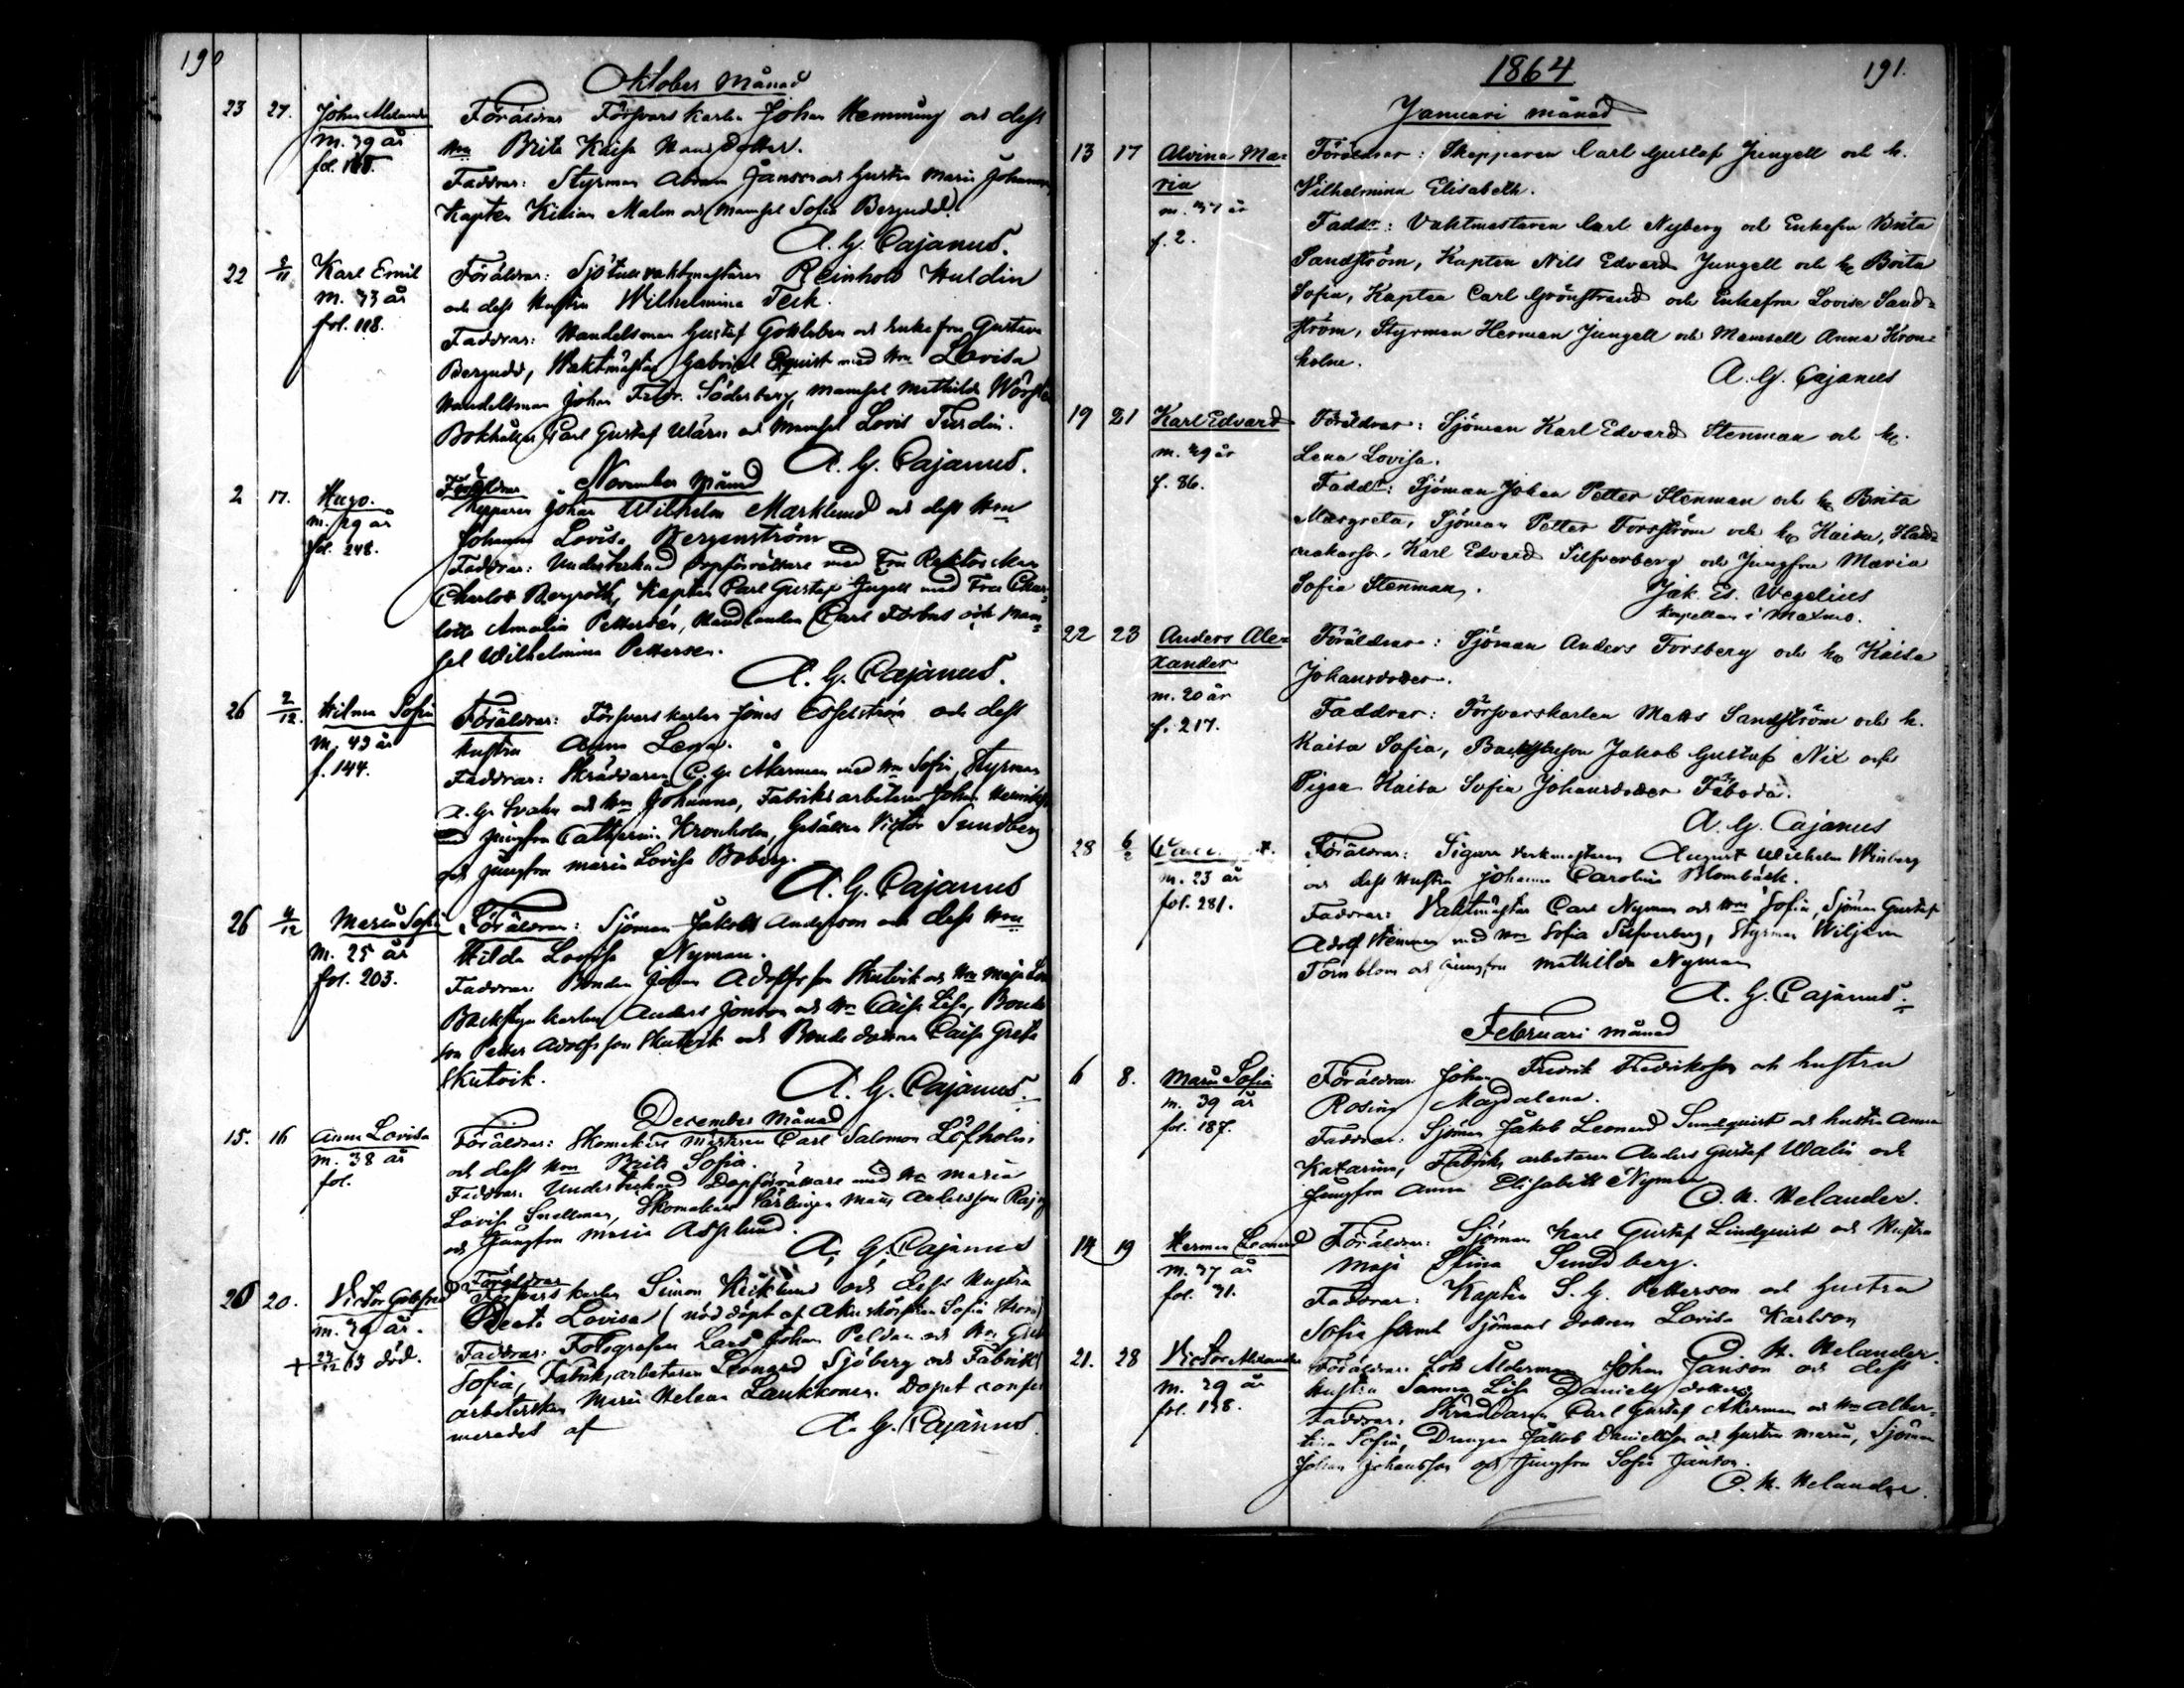 190
Oktober Månad
23 27. Johan
m. 39 år
fol.
Föräldrar Försvarskarlen Johan Hemming och dess
Hru Brita Kaisa Hansdotter.
Faddrar: Styrman Abram Janson och Gustra Maria
Kapten Kilian Malm och Mamsel Sofia Bergudd.
A. G. Cajanus.
22 2/11 Karl Emil
m. 33 år
fol. 118.
Föräldrar: Sjötullvaktmästaren Reinhold Huldin
och dess Hustru Wilhelmina Tesk.
Faddrar: Handelsman Gustaf och Enkefru Gustava
Bergudd, Waktmästar Gabriel med Hru Lovisa
Handelsman Johan Fredr. Söderberg, Mamsel Mathilda
Bokhållar Carl Gustaf och Mamsel Lovis
A. G. Cajanus.
November Månad
2 17. Hugo.
m. 29 år
fol. 248.
Föräldrar
Skepparen Johan Wilhelm Marklund och dess Hru
Johanna Lovisa Bergenström
Faddrar: Undertecknad Dopförrättare med Fru
Charlott Bergroth, Kapten Carl Gustaf Jungell med Fru Char-
lotta Amalia Petterson, Handlanden Carl Forbus och Mam-
sel Wilhelmina Petterson.
A. G. Cajanus.
26 2/12. Hilma Sofia
m. 43 år
f. 144.
Föräldrar: Försvarskarlen Jonas och dess
Hustru Anna Lena.
Faddrar: Skräddaren C. G. Åkerman med Hru Sofia, Styrman
A. G. Svahn och Hru Johanna, Fabriksarbetaren Johan
Jungfru Catharina Kronholm, Gesällen Victor Sundberg
och Jungfru Maria Lovisa Boberg.
A. G. Cajanus
26 4/12 Maria Sofia
m. 25 år
fol. 203.
Föräldrar: Sjöman Jakob Anderson och dess Hru
Hilda Lovisa Nyman.
Faddrar: Bonden Johan Adolfsson Skutvik och Hru Maja
Anders Jonson och Hru Caisa Lisa, Bonde
son Petter Adolfsson Skutvik och Bondedottren Caisa Greta
Skutvik.
A. G. Cajanus.
December Månad
15. 16 Anna Lovisa
m. 38 år
fol.
Föräldrar: Skomakare mästaren Carl Salomon Löfholm
och dess Hru Brita Sofia.
Faddrar: Undertecknad Dopförrättare med Hru Maria
Lovisa Snellman, Skomakare Lärlingen Matts
och Jungfru Maria Asplund.
A. G. Cajanus
20 20. Victor Gottfrid
m. 39 år.
+ 63 död.
Föräldrar
Försvarskarlen Simon och dess Hustru
Beata Lovisa (nöddöpt af Sofia
Faddrar: Fotografen Lars Johan Peldan och Hru
Sofia, Fabriksarbetaren Leonard Sjöberg och Fabriks
arbeterskan Maria Helena Laukkonen. Dopet confir
merades af
A. G. Cajanus
1864
191.
Januari månad
13 17 Alvina Ma-
ria
m. 37 år
f. 2.
Föräldrar: Skepparen Carl Gustaf Jungell och h.
Vilhelmina Elisabeth.
Faddr: Vaktmestaren Carl Nyberg och Enkefru Brita
Sandström, Kapten Nils Edvard Jungell och h. Brita
Sofia, Kapten Carl Grönstrand och Enkefru Lovisa Sand-
ström, Styrman Herman Jungell och Mamsell Anna Kron-
holm.
A. G. Cajanus
19 21 Karl Edvard
m. 29 år
f. 86.
Föräldrar: Sjöman Karl Edvard Stenman och h.
Lena Lovisa.
Faddr: Sjöman Johan Petter Stenman och h. Brita
Margreta, Sjöman Petter Forsström och h. Kaisa,
Karl Edvard Silfverberg och Jungfru Maria
Sofia Stenman.
Jak. Es. Wegelius
Kapellan i Maxmo.
22 23 Anders Ale-
xander
m. 20 år
f. 217.
Föräldrar: Sjöman Anders Forsberg och h. Kaisa
Johansdotter.
Faddrar: Försvarskarlen Matts Sandström och h.
Kaisa Sofia, Jakob Gustaf Nix och
Pigan Kaisa Sofia Johansdotter Fäboda.
A. G. Cajanus
28 6/2
m. 23 år
fol. 281.
Föräldrar: Verkmästaren August Wilhelm Winberg
och dess Hustru Johanna Carolina Blombäck.
Faddrar: Vaktmästar Carl Nyman och Hru Sofia, Sjöman Gustaf
Adolf med Hru Sofia Silfverberg, Styrman Wiljam
Törnblom och Jungfru Mathilda Nyman
A. G. Cajanus.
Februari månad
6 8. Maria Sofia
m. 39 år
fol. 187.
Föräldrar Johan Fredrik Fredriksson och hustru
Rosina Magdalena.
Faddrar: Sjöman Jakob Leonard Sundquist och hustru Anna
Katarina, Fabriks arbetaren Anders Gustaf Walin och
Jungfru Anna Elisabeth Nyman
O. H. Helander.
14 19 Herman Leonard
m. 37 år
fol. 31.
Föräldrar: Sjöman Karl Gustaf Lindquist och Hustru
Maja Stina Sundberg.
Faddrar: Kapten S. G. Petterson och Hustru
Sofia samt Sjömans dottren Lovisa Karlson
O. H. Helander.
21. 28 Victor Alexander
m. 39 år
fol. 138.
Föräldrar: Lots Ålderman Johan Janson och dess
Hustru Sanna Lisa Danielsdotter.
Faddrar: Skräddaren Carl Gustaf Åkerman och Hru Alber-
tina Sofia, Drengen Jakob Danielsson och Hustru Maria, Sjöman
Johan Johansson och Jungfru Sofia Janson.
O. H. Helander.